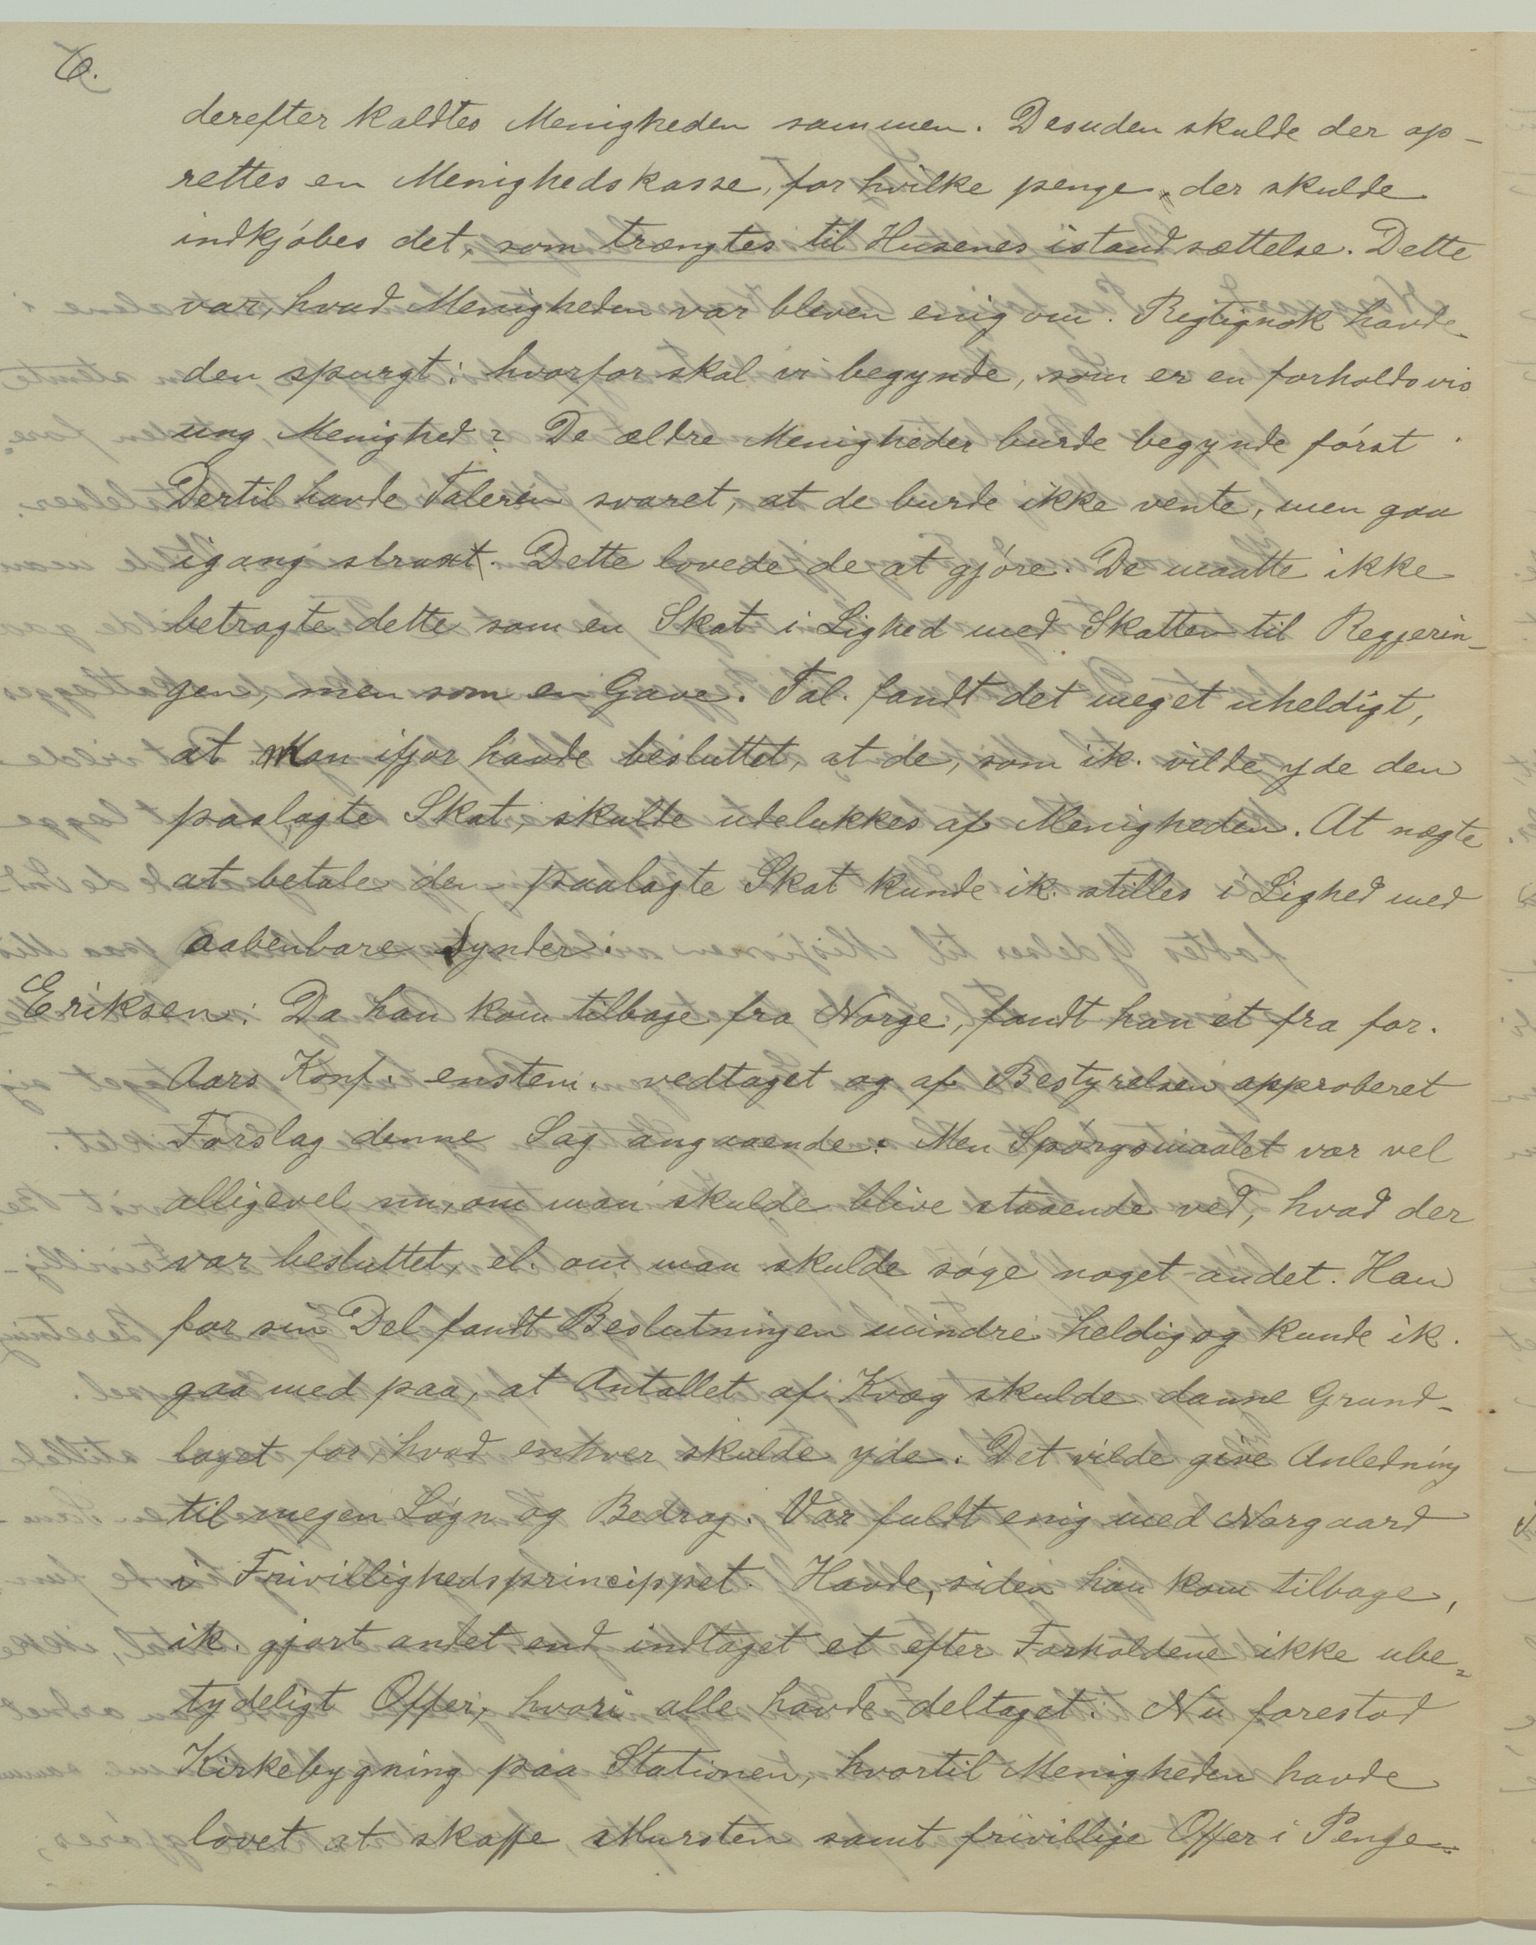 6.
derefter kaldtes Menigheden sammen. Desuden skulde der op-
rettes en Menighedskasse, for hvilke penge, der skulde
indkjøbes det, som trængtes til Husenes istandsættelse. Dette
var, hvad Menigheden var bleven enig om. Rigtignok havde
den spurgt: hvorfor skal vi begynde, som er en forholdsvis
ung Menighed? De ældre Menigheder burde begynde først.
Dertil havde Taleren svaret, at de burde ikke vente, men gaa
igang strax. Dette lovede de at gjøre. De maatte ikke
betragte dette som en Skat i Lighed med Skatten til Regjerin-
gen, men som en Gave. Tal. fandt det meget uheldigt,
at Man ifjor havde besluttet, at de, som ik. vilde yde den
paalagte Skat, skulde udelukkes af Menigheden. At nægte
at betale den paalagte Skat kunde ik. stilles i Lighed med
aabenbare Synder.
Eriksen: Da han kom tilbage fra Norge, fandt han et fra for.
Aars Konf. enstem. vedtaget og af Bestyrelsen approberet
Forslag denne Sag angaaende. Men Spørgsmaalet var vel
alligevel nu, om man skulde blive staaende ved, hvad der
var besluttet el. om man skulde søge noget andet. Han
for sin Del fandt Beslutningen mindre heldig og kunde ik.
gaa med paa, at Antallet af Kvæg skulde danne Grund-
laget for hvad enhver skulde yde. Det vilde give Anledning
til megen Løgn og Bedrag. Var fuldt enig med Norgaard
i Frivillighedsprincippet. Havde, siden han kom tilbage,
ik. gjort andet end indtaget et efter Forholdene ikke ube-
tydeligt Offer, hvori alle havde deltaget. Nu forestod
Kirkebygning paa Stationen, hvortil Menigheden havde
lovet at skaffe Mursten samt frivillige Offer i Penge.